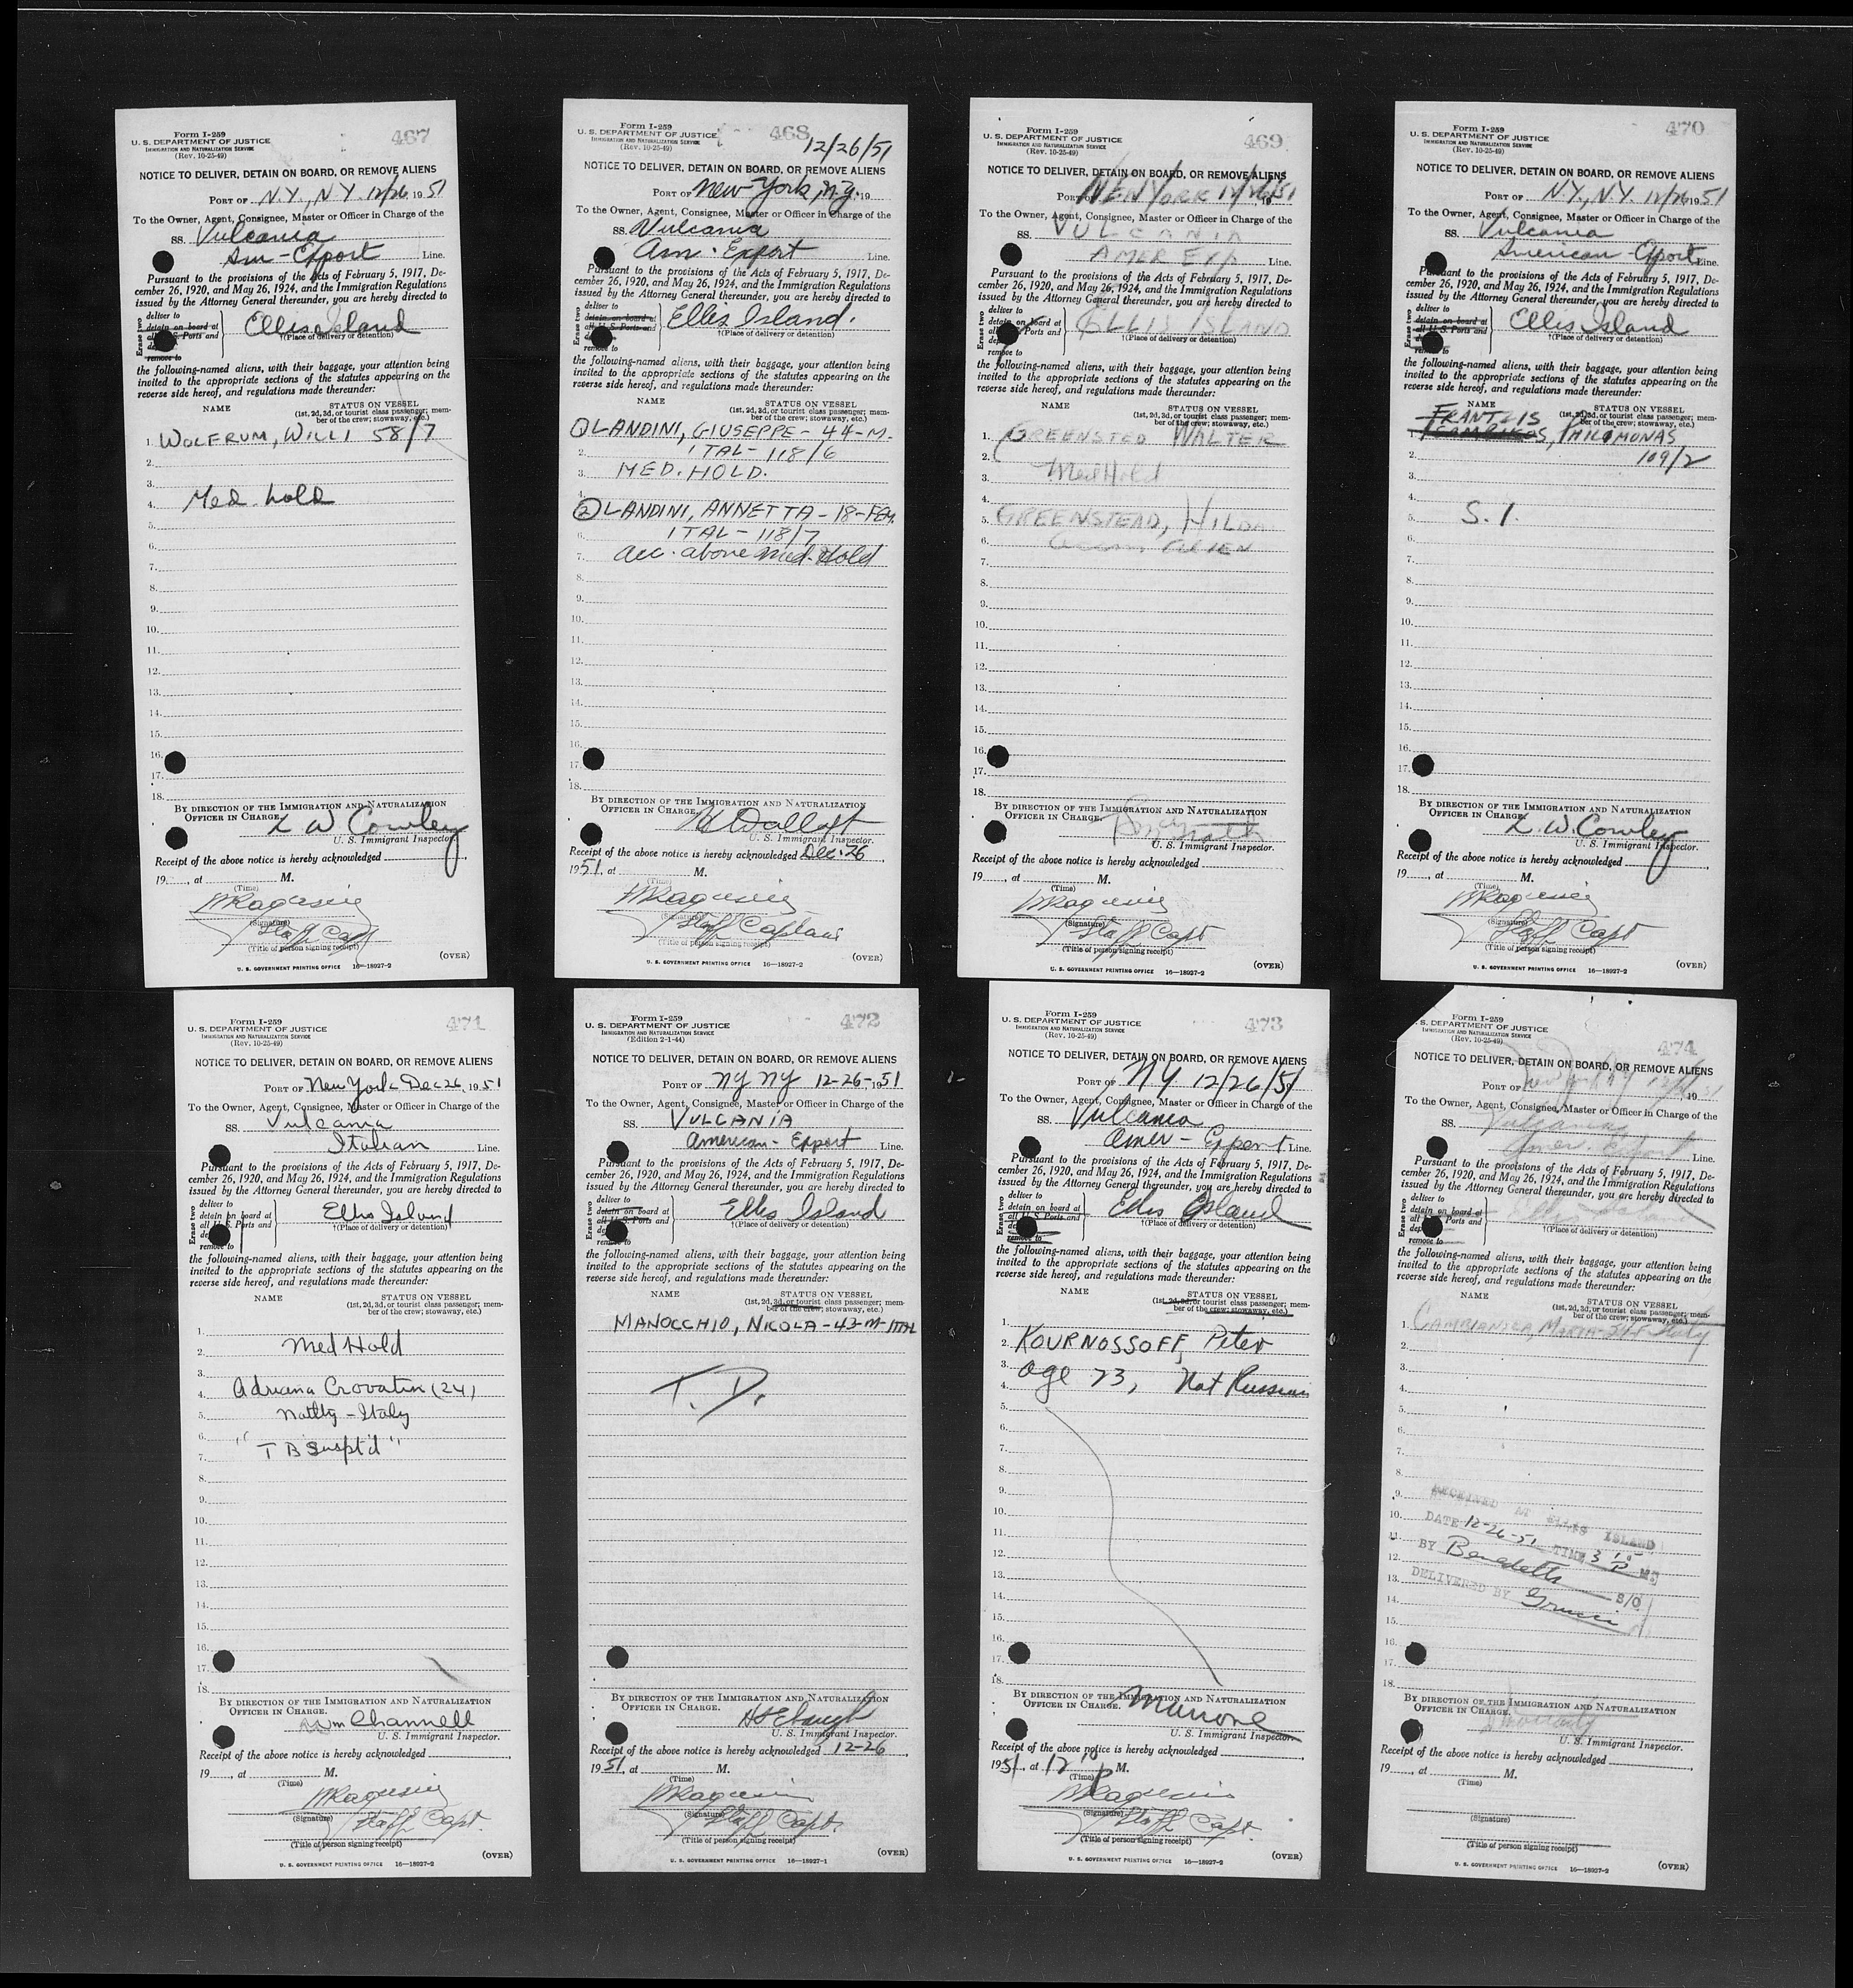 Form I-259
U. S. DEPARTMENT OF JUSTICE
IMMIGRATION AND NATURALIZATION SERVICE
(Rev. 10-25-49)
467
NOTICE TO DELIVER, DETAIN ON BOARD, OR REMOVE ALIENS
PORT OF N.Y., N.Y. 12/26 1951
To the Owner, Agent, Consignee, Master or Officer in Charge of the
SS. Vulcania
Am - Export Line.
Pursuant to the provisions of the Acts of February 5, 1917, De-
cember 26, 1920, and May 26, 1924, and the Immigration Regulations
issued by the Attorney General thereunder, you are hereby directed to
Erase two
deliver to
detain on board at
all U. S. Ports and
remove to
Ellis Island
†(Place of delivery or detention)
the following-named aliens, with their baggage, your attention being
invited to the appropriate sections of the statutes appearing on the
reverse side hereof, and regulations made thereunder:
NAME STATUS ON VESSEL
(1st, 2d, 3d, or tourist class passenger; mem-
ber of the crew; stowaway, etc.)
1. WOLFRUM, WILLI 58/7
2.
3.
4. Med. hold
5.
6.
7.
8.
9.
10.
11.
12.
13.
14.
15.
16.
17.
18.
BY DIRECTION OF THE IMMIGRATION AND NATURALIZATION
OFFICER IN CHARGE.
L W Cowley
U. S. Immigrant Inspector.
Receipt of the above notice is hereby acknowledged
19 , at M.
(Time)
(Signature)
Staff Capt
(Title of person signing receipt)
(OVER)
U. S. GOVERNMENT PRINTING OFFICE 16—18927-2
Form I-259
U. S. DEPARTMENT OF JUSTICE
IMMIGRATION AND NATURALIZATION SERVICE
(Rev. 10-25-49)
468
12/26/51
NOTICE TO DELIVER, DETAIN ON BOARD, OR REMOVE ALIENS
PORT OF New York, N.Y. 19
To the Owner, Agent, Consignee, Master or Officer in Charge of the
SS. Vulcania
Am. Export Line.
Pursuant to the provisions of the Acts of February 5, 1917, De-
cember 26, 1920, and May 26, 1924, and the Immigration Regulations
issued by the Attorney General thereunder, you are hereby directed to
Erase two
deliver to
detain on board at
all U. S. Ports and
remove to
Ellis Island.
†(Place of delivery or detention)
the following-named aliens, with their baggage, your attention being
invited to the appropriate sections of the statutes appearing on the
reverse side hereof, and regulations made thereunder:
NAME STATUS ON VESSEL
(1st, 2d, 3d, or tourist class passenger; mem-
ber of the crew; stowaway, etc.)
1 LANDINI, GIUSEPPE - 44-M.
2. ITAL - 118/6
3. MED. HOLD.
4.
2 LANDINI, ANNETTA - 18-FEM.
6. ITAL - 118/7
7. acc. above Med. Hold
8.
9.
10.
11.
12.
13.
14.
15.
16.
17.
18.
BY DIRECTION OF THE IMMIGRATION AND NATURALIZATION
OFFICER IN CHARGE.
U. S. Immigrant Inspector.
Receipt of the above notice is hereby acknowledged Dec. 26
1951, at M.
(Time)
(Signature)
Staff Captain
(Title of person signing receipt)
(OVER)
U. S. GOVERNMENT PRINTING OFFICE 16—18927-2
Form I-259
U. S. DEPARTMENT OF JUSTICE
IMMIGRATION AND NATURALIZATION SERVICE
(Rev. 10-25-49)
469
NOTICE TO DELIVER, DETAIN ON BOARD, OR REMOVE ALIENS
PORT OF NEW YORK 12/26/51
To the Owner, Agent, Consignee, Master or Officer in Charge of the
SS. VULCANIA
AMER EXP Line.
Pursuant to the provisions of the Acts of February 5, 1917, De-
cember 26, 1920, and May 26, 1924, and the Immigration Regulations
issued by the Attorney General thereunder, you are hereby directed to
Erase two
deliver to
detain on board at
all U. S. Ports and
remove to
ELLIS ISLAND
†(Place of delivery or detention)
the following-named aliens, with their baggage, your attention being
invited to the appropriate sections of the statutes appearing on the
reverse side hereof, and regulations made thereunder:
NAME STATUS ON VESSEL
(1st, 2d, 3d, or tourist class passenger; mem-
ber of the crew; stowaway, etc.)
1. GREENSTED WALTER
2.
3. Med Hold
4.
5. GREENSTEAD, HILDA
6. Accom. ALIEN
7.
8.
9.
10.
11.
12.
13.
14.
15.
16.
17.
18.
BY DIRECTION OF THE IMMIGRATION AND NATURALIZATION
OFFICER IN CHARGE.
U. S. Immigrant Inspector.
Receipt of the above notice is hereby acknowledged
19 , at M.
(Time)
(Signature)
Staff Capt
(Title of person signing receipt)
(OVER)
U. S. GOVERNMENT PRINTING OFFICE 16—18927-2
Form I-259
U. S. DEPARTMENT OF JUSTICE
IMMIGRATION AND NATURALIZATION SERVICE
(Rev. 10-25-49)
470
NOTICE TO DELIVER, DETAIN ON BOARD, OR REMOVE ALIENS
PORT OF N.Y., N.Y. 12/26 1951
To the Owner, Agent, Consignee, Master or Officer in Charge of the
SS. Vulcania
American - Export Line.
Pursuant to the provisions of the Acts of February 5, 1917, De-
cember 26, 1920, and May 26, 1924, and the Immigration Regulations
issued by the Attorney General thereunder, you are hereby directed to
Erase two
deliver to
detain on board at
all U. S. Ports and
remove to
Ellis Island
†(Place of delivery or detention)
the following-named aliens, with their baggage, your attention being
invited to the appropriate sections of the statutes appearing on the
reverse side hereof, and regulations made thereunder:
NAME STATUS ON VESSEL
(1st, 2d, 3d, or tourist class passenger; mem-
ber of the crew; stowaway, etc.)
FRANTZIS
1. PHILIMONAS,
2. 109/2
3.
4.
5. S.I.
6.
7.
8.
9.
10.
11.
12.
13.
14.
15.
16.
17.
18.
BY DIRECTION OF THE IMMIGRATION AND NATURALIZATION
OFFICER IN CHARGE.
L. W. Cowley
U. S. Immigrant Inspector.
Receipt of the above notice is hereby acknowledged
19 , at M.
(Time)
(Signature)
Staff Capt
(Title of person signing receipt)
(OVER)
U. S. GOVERNMENT PRINTING OFFICE 16—18927-2
Form I-259
U. S. DEPARTMENT OF JUSTICE
IMMIGRATION AND NATURALIZATION SERVICE
(Rev. 10-25-49)
471
NOTICE TO DELIVER, DETAIN ON BOARD, OR REMOVE ALIENS
PORT OF New York Dec 26, 1951
To the Owner, Agent, Consignee, Master or Officer in Charge of the
SS. Vulcania
Italian Line.
Pursuant to the provisions of the Acts of February 5, 1917, De-
cember 26, 1920, and May 26, 1924, and the Immigration Regulations
issued by the Attorney General thereunder, you are hereby directed to
Erase two
deliver to
detain on board at
all U. S. Ports and
remove to
Ellis Island
†(Place of delivery or detention)
the following-named aliens, with their baggage, your attention being
invited to the appropriate sections of the statutes appearing on the
reverse side hereof, and regulations made thereunder:
NAME STATUS ON VESSEL
(1st, 2d, 3d, or tourist class passenger; mem-
ber of the crew; stowaway, etc.)
1.
2. Med Hold
3.
4. Adriana Crovatin (24)
5. Natlty - Italy
6.
7. "T B Suspt'd"
8.
9.
10.
11.
12.
13.
14.
15.
16.
17.
18.
BY DIRECTION OF THE IMMIGRATION AND NATURALIZATION
OFFICER IN CHARGE.
Wm Channell
U. S. Immigrant Inspector.
Receipt of the above notice is hereby acknowledged
19 , at M.
(Time)
(Signature)
Staff Capt.
(Title of person signing receipt)
(OVER)
U. S. GOVERNMENT PRINTING OFFICE 16—18927-2
Form I-259
U. S. DEPARTMENT OF JUSTICE
IMMIGRATION AND NATURALIZATION SERVICE
(Edition 2-1-44)
472
NOTICE TO DELIVER, DETAIN ON BOARD, OR REMOVE ALIENS
PORT OF NY NY 12-26-1951
To the Owner, Agent, Consignee, Master or Officer in Charge of the
SS. VULCANIA
American - Export Line.
Pursuant to the provisions of the Acts of February 5, 1917, De-
cember 26, 1920, and May 26, 1924, and the Immigration Regulations
issued by the Attorney General thereunder, you are hereby directed to
Erase two
deliver to
detain on board at
all U. S. Ports and
remove to
Ellis Island
†(Place of delivery or detention)
the following-named aliens, with their baggage, your attention being
invited to the appropriate sections of the statutes appearing on the
reverse side hereof, and regulations made thereunder:
NAME STATUS ON VESSEL
(1st, 2d, 3d, or tourist class passenger; mem-
ber of the crew; stowaway, etc.)
MANOCCHIO, NICOLA - 43-M-ITAL
T. D.
BY DIRECTION OF THE IMMIGRATION AND NATURALIZATION
OFFICER IN CHARGE.
U. S. Immigrant Inspector.
Receipt of the above notice is hereby acknowledged 12-26
1951, at M.
(Time)
(Signature)
Staff Capt.
(Title of person signing receipt)
(OVER)
U. S. GOVERNMENT PRINTING OFFICE 16—18927-1
Form I-259
U. S. DEPARTMENT OF JUSTICE
IMMIGRATION AND NATURALIZATION SERVICE
(Rev. 10-25-49)
473
NOTICE TO DELIVER, DETAIN ON BOARD, OR REMOVE ALIENS
PORT OF NY 12/26/51
To the Owner, Agent, Consignee, Master or Officer in Charge of the
SS. Vulcania
Amer - Export Line.
Pursuant to the provisions of the Acts of February 5, 1917, De-
cember 26, 1920, and May 26, 1924, and the Immigration Regulations
issued by the Attorney General thereunder, you are hereby directed to
Erase two
deliver to
detain on board at
all U. S. Ports and
remove to
Ellis Island
†(Place of delivery or detention)
the following-named aliens, with their baggage, your attention being
invited to the appropriate sections of the statutes appearing on the
reverse side hereof, and regulations made thereunder:
NAME STATUS ON VESSEL
(1st, 2d, 3d, or tourist class passenger; mem-
ber of the crew; stowaway, etc.)
1.
2. KOURNOSSOFF, Peter
3. age 73, Nat Russian
4.
5.
6.
7.
8.
9.
10.
11.
12.
13.
14.
15.
16.
17.
18.
BY DIRECTION OF THE IMMIGRATION AND NATURALIZATION
OFFICER IN CHARGE.
U. S. Immigrant Inspector.
Receipt of the above notice is hereby acknowledged
1951, at 12 P M.
(Time)
(Signature)
Staff Capt.
(Title of person signing receipt)
(OVER)
U. S. GOVERNMENT PRINTING OFFICE 16—18927-2
Form I-259
U. S. DEPARTMENT OF JUSTICE
IMMIGRATION AND NATURALIZATION SERVICE
(Rev. 10-25-49)
474
NOTICE TO DELIVER, DETAIN ON BOARD, OR REMOVE ALIENS
PORT OF New York NY 12/26 1951
To the Owner, Agent, Consignee, Master or Officer in Charge of the
SS. Vulcania
Amer. Export Line.
Pursuant to the provisions of the Acts of February 5, 1917, De-
cember 26, 1920, and May 26, 1924, and the Immigration Regulations
issued by the Attorney General thereunder, you are hereby directed to
Erase two
deliver to
detain on board at
all U. S. Ports and
remove to
Ellis Island
†(Place of delivery or detention)
the following-named aliens, with their baggage, your attention being
invited to the appropriate sections of the statutes appearing on the
reverse side hereof, and regulations made thereunder:
NAME STATUS ON VESSEL
(1st, 2d, 3d, or tourist class passenger; mem-
ber of the crew; stowaway, etc.)
1. Italy
2.
3.
4.
5.
6.
7.
8.
9.
10.
11.
12.
13.
14.
15.
16.
17.
18.
RECEIVED AT ELLIS ISLAND
DATE 12-26-51 TIME 3 P M
BY S/O
DELIVERED BY
BY DIRECTION OF THE IMMIGRATION AND NATURALIZATION
OFFICER IN CHARGE.
U. S. Immigrant Inspector.
Receipt of the above notice is hereby acknowledged
19 , at M.
(Time)
(Signature)
(Title of person signing receipt)
(OVER)
U. S. GOVERNMENT PRINTING OFFICE 16—18927-2